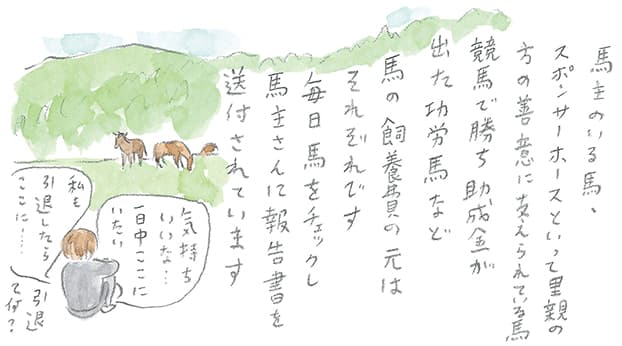 馬主のいる馬、
スポンサーホースといって里親の
方の善意に支えられている馬
競馬で勝ち助成金が
出た功労馬など
馬の飼養費の元は
それぞれです
毎日馬をチェックし
馬主さんに報告書を
送付されています
気持ち
いいな…
一日中ここに
いたい
私も
引退したら
ここに……
引退
て何？